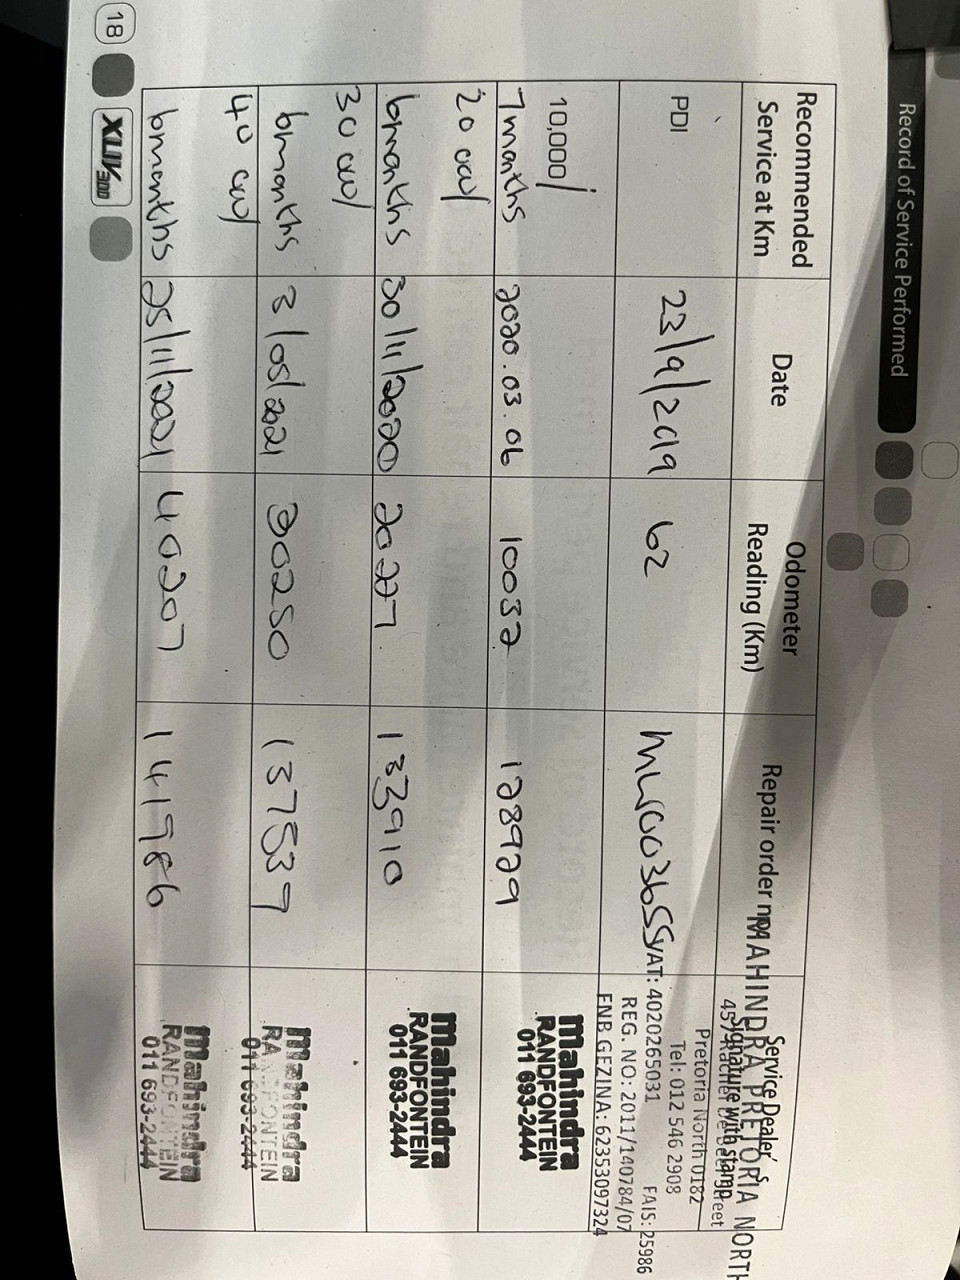 Record of Service Performed
Recommended Service at Km
Date
Odometer Reading (Km)
Repair order no.
Service Dealer's Signature with stamp
PDI
23/9/2019
62
MAHINDRA PRETORIA NORTH
Street
Pretoria North 0182
Tel: 012 546 2908
FAIS: 25986
VAT: 4020265031
REG. NO: 2011/140784/07
FNB GEZINA: 62353097324
10,000/
7months
2020.03.06
10032
128929
mahindra
RANDFONTEIN
011 693-2444
20 000/
6months
30/11/2020
20227
133910
mahindra
RANDFONTEIN
011 693-2444
30 000/
6months
3/05/2021
30250
137539
mahindra
RANDFONTEIN
011 693-2444
40 000/
6months
25/11/2021
40207
141986
mahindra
RANDFONTEIN
011 693-2444
18
XUV300